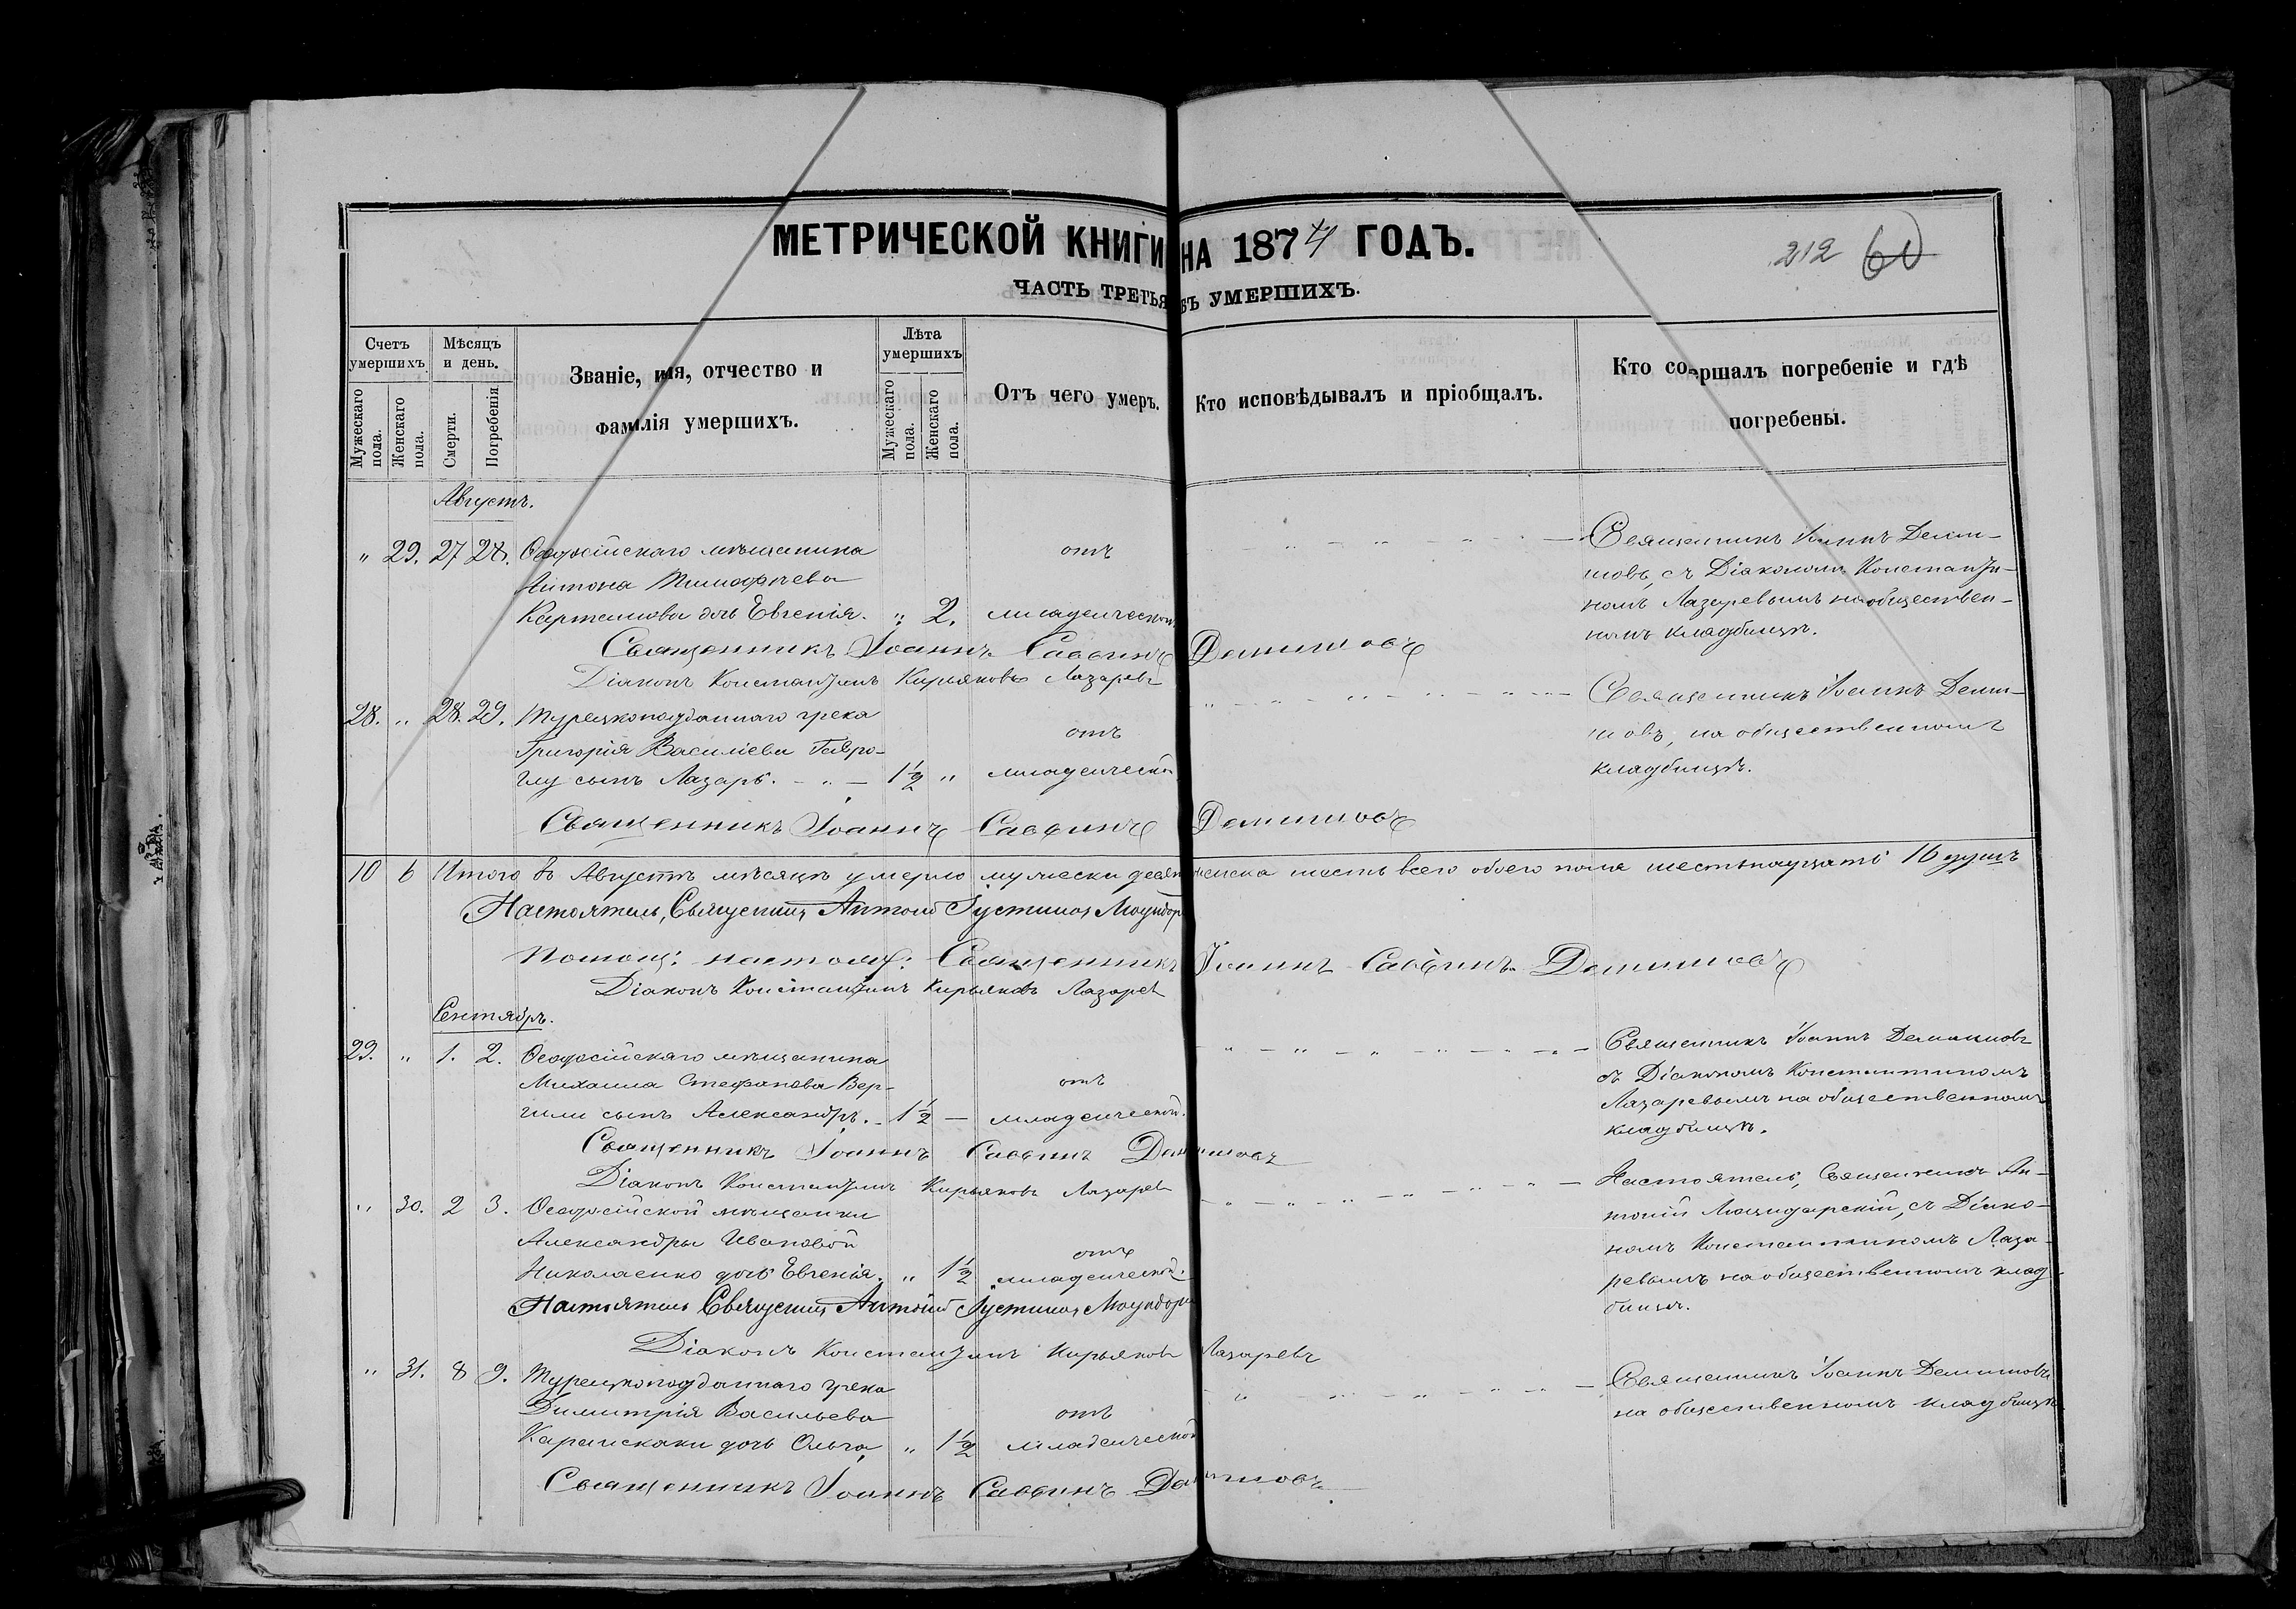 МЕТРИЧЕСКОЙ КНИГИ НА 1874 ГОДЪ.
212 60
ЧАСТЬ ТРЕТЬЯ УМЕРШИХЪ.
Счетъ умершихъ.
Мужескаго пола.
Женскаго пола.
Мѣсяцъ и день.
Смерти.
Погребенія
Званіе, имя, отчество и
фамилія умершихъ.
Лѣта умершихъ
Мужескаго пола.
Женскаго пола.
Отъ чего умеръ.
Кто исповѣдывалъ и пріобщалъ.
Кто совершалъ погребеніе и гдѣ
погребены.
Августъ.
" 29. 27 28. Ѳеодосійскаго мѣщанина отъ
Антона Тимофѣева
дочь Евгенія. " 2. младенческой
Священникъ Іоаннъ Деми-
шовъ, съ Діакономъ Константи-
номъ Лазаревымъ на обществен-
номъ кладбищѣ.
Священникъ Іоаннъ Саввинъ Демишовъ
Діаконъ Константинъ Кирьяковъ Лазаревъ
28. " 28. 29. Турецкоподданнаго грека
Григорія Василіева Гавро- отъ
глу сынъ Лазарь. - " - 1½ " младенческой
Священникъ Іоаннъ Деми-
шовъ, на общественномъ
кладбищѣ.
Священникъ Іоаннъ Саввинъ Демишовъ
10 6 Итого въ Августѣ мѣсяцѣ умерло мужеска женска шесть всего обоего пола шестьнадцать 16 душъ
Настоятель, Священникъ Антоній Іустиновъ
Помощ: настоят: Священникъ Іоаннъ Саввинъ Демишовъ
Діаконъ Константинъ Кирьяковъ Лазаревъ
Сентябрь.
29. " 1. 2. Ѳеодосійскаго мѣщанина
Михаила Стефанова Вер- отъ
гили сынъ Александръ. - 1½ — младенческой.
Священникъ Іоаннъ Демишовъ
съ Діакономъ Константиномъ
Лазаревымъ на общественномъ
кладбищѣ.
Священникъ Іоаннъ Саввинъ Демишовъ
Діаконъ Константинъ Кирьяковъ Лазаревъ
" 30. 2 3. Ѳеодосійской мѣщанки
Александры Ивановой отъ
Николаенко дочь Евгенія. " 1½ младенческой.
Настоятель, Священникъ Ан-
тоній съ Діако-
номъ Константиномъ Лаза-
ревымъ на общественномъ клад-
бищѣ.
Настоятель Священникъ Антоній Іустиновъ
Діаконъ Константинъ Кирьяковъ Лазаревъ
" 31. 8 9. Турецкоподданнаго грека
Димитрія Васильева отъ
Караискаки дочь Ольга, " 1½ младенческой
Священникъ Іоаннъ Демишовъ
на общественномъ кладбищѣ
Священникъ Іоаннъ Саввинъ Демишовъ